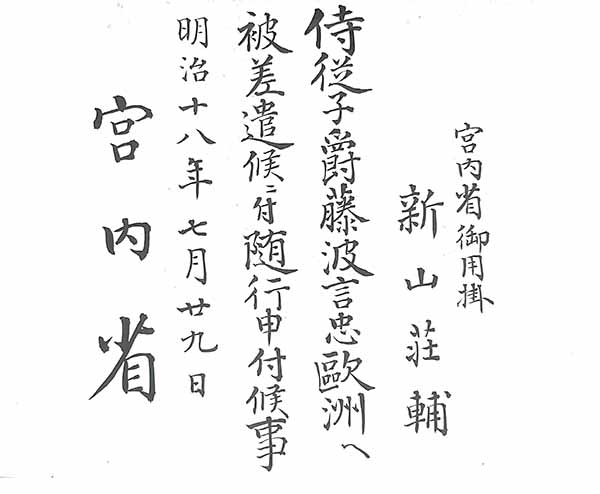 宮内省御用掛
新山荘輔
侍從子爵藤波言忠歐洲へ
被差遣候ニ付随行申付候事
明治十八年七月廿九日
宮内省